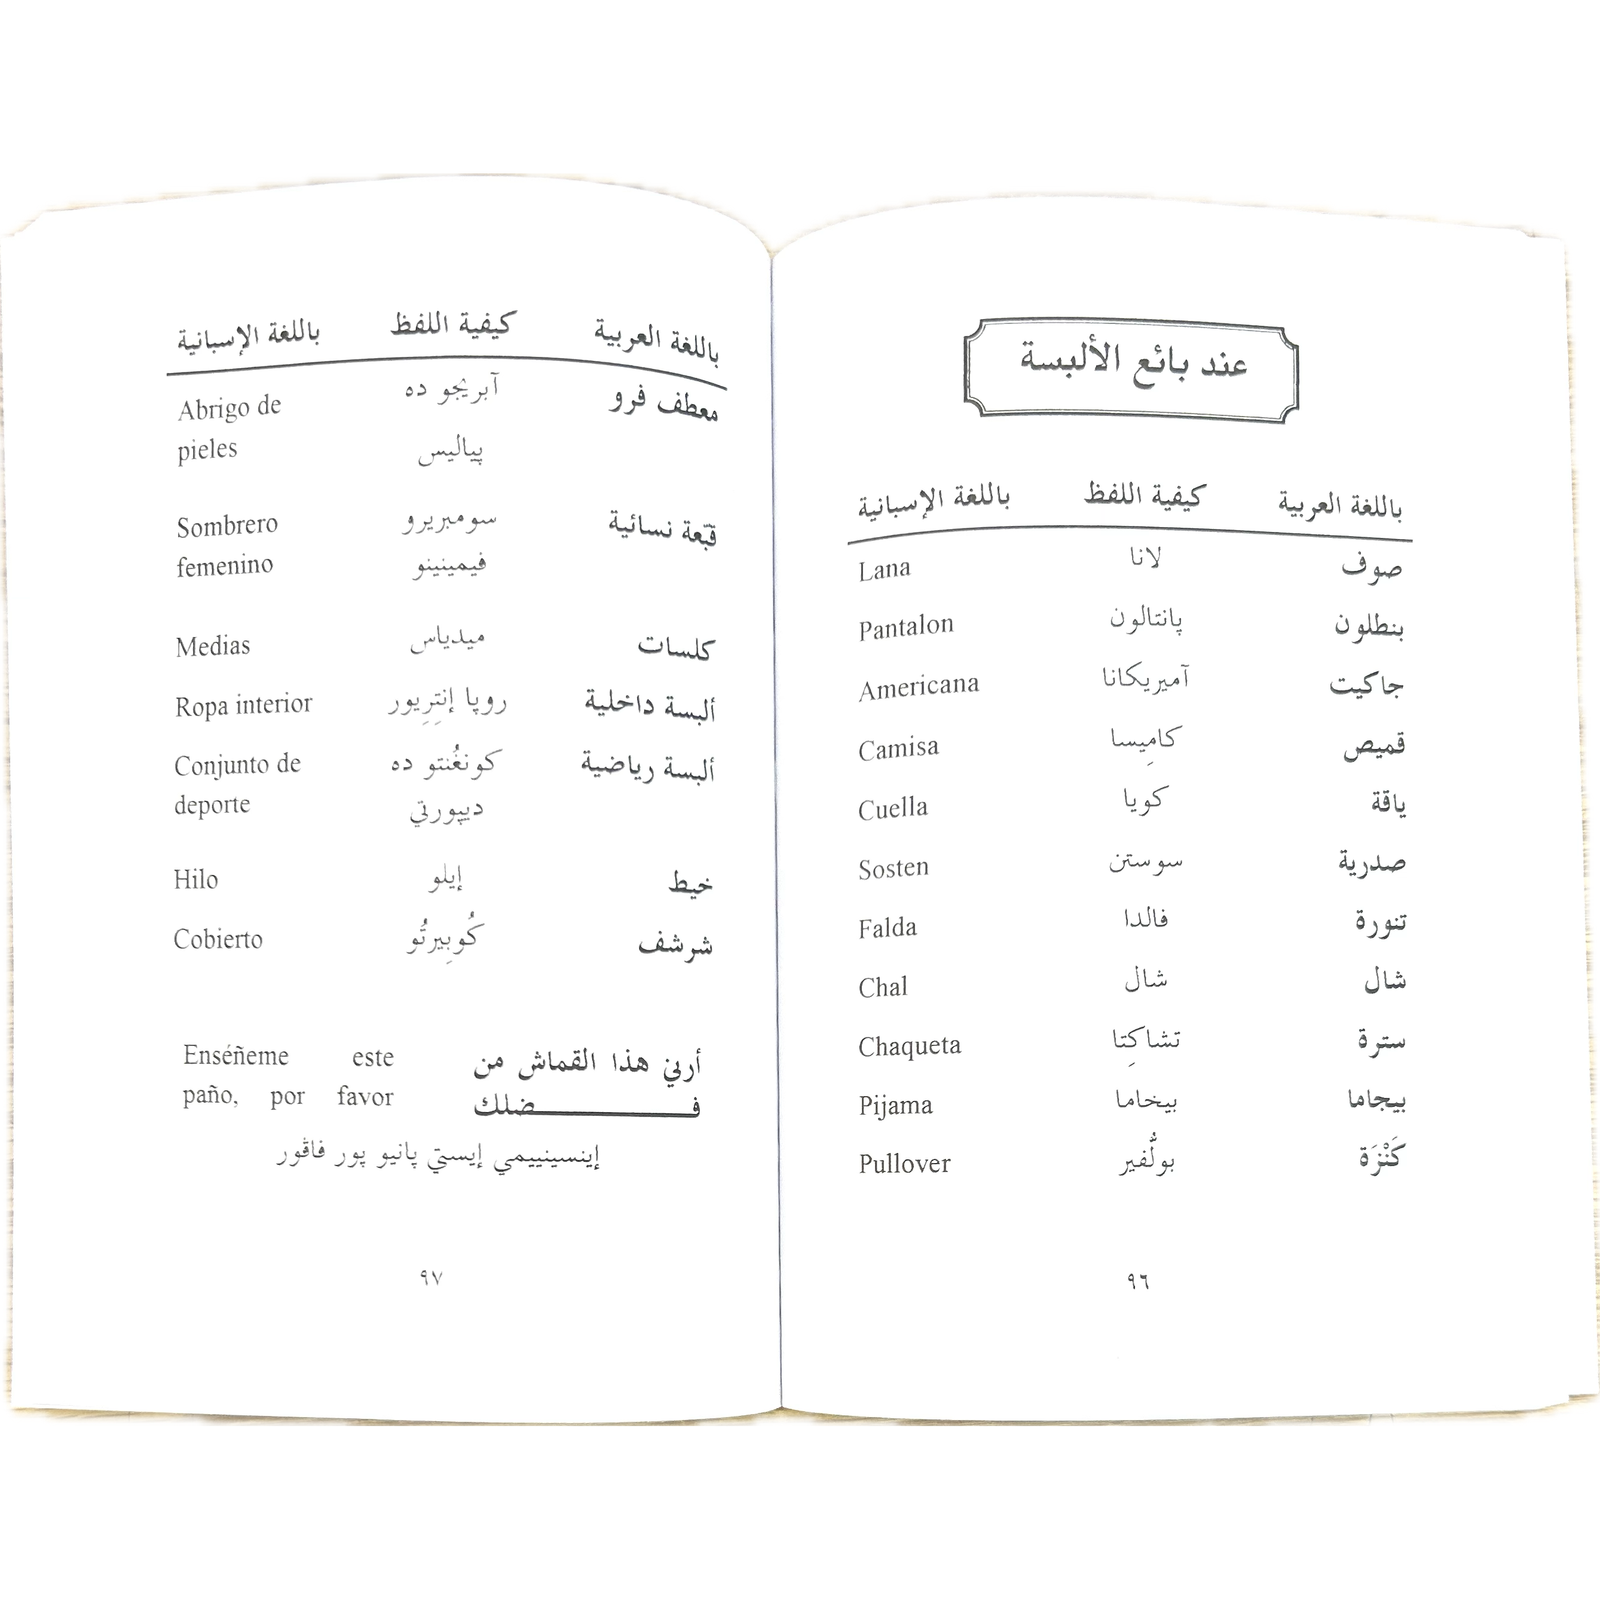 عند بائع الألبسة
باللغة العربية كيفية اللفظ باللغة الإسبانية
صوف لانا Lana
بنطلون پانتالون Pantalon
جاكيت آميريكانا Americana
قميص كامِيسا Camisa
ياقة كويا Cuella
صدرية سوستن Sosten
تنورة فالدا Falda
شال شال Chal
سترة تشاكِتا Chaqueta
بيجاما بيخاما Pijama
كَنْزَة بولُّفير Pullover
٩٦
باللغة العربية كيفية اللفظ باللغة الإسبانية
معطف فرو آبريجو ده Abrigo de
پياليس pieles
قبّعة نسائية سومبريرو Sombrero
فيمينينو femenino
كلسات ميدياس Medias
ألبسة داخلية روپا إنتِرِيور Ropa interior
ألبسة رياضية كونغُنتو ده Conjunto de
ديپورتي deporte
خيط إيلو Hilo
شرشف كُوبِيرتُو Cobierto
أرني هذا القماش من Enséñeme este
فـضلك paño, por favor
إينسينييمي إيستي پانيو پور فاڤور
٩٧